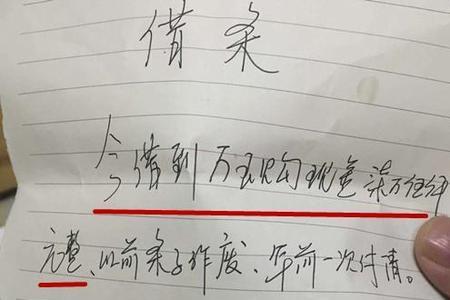 借条
今借到万现金柒万伍仟
元整、以前条子作废、年前一次付清。